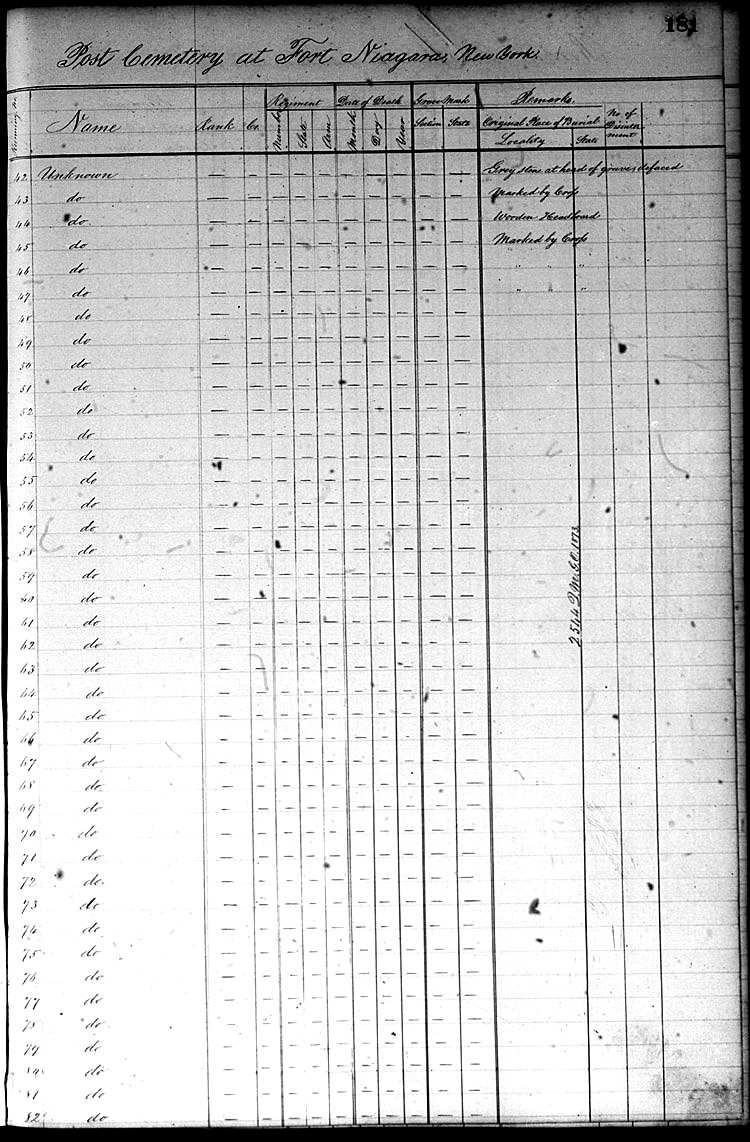 181
Post Cemetery at Fort Niagara, New York.
Name Rank Co. Regiment Date of Death Grave Mark Remarks.
Number State Arm Month Day Year Section Original Place of Burial No. of
Locality State
42 Unknown — — — — — — — — — — Grey stone at head of grave; defaced
43 do — — — — — — — — — — Marked by Cross
44 do. — — — — — — — — — — Wooden Headboard
45 do — — — — — — — — — — Marked by Cross
46 do — — — — — — — — — — " " "
47 do — — — — — — — — — — " " "
48 do — — — — — — — — — —
49 do — — — — — — — — — —
50 do — — — — — — — — — —
51 do — — — — — — — — — —
52 do — — — — — — — — — —
53 do — — — — — — — — — —
54 do — — — — — — — — — —
55 do — — — — — — — — — —
56 do — — — — — — — — — —
57 do — — — — — — — — — —
58 do — — — — — — — — — —
59 do — — — — — — — — — —
60 do — — — — — — — — — —
61 do — — — — — — — — — —
62 do — — — — — — — — — —
63 do — — — — — — — — — —
64 do — — — — — — — — — —
65 do — — — — — — — — — —
66 do — — — — — — — — — —
67 do — — — — — — — — — —
68 do — — — — — — — — — —
69 do — — — — — — — — — —
70 do — — — — — — — — — —
71 do — — — — — — — — — —
72 do. — — — — — — — — — —
73 do — — — — — — — — — —
74 do — — — — — — — — — —
75 do — — — — — — — — — —
76 do — — — — — — — — — —
77 do — — — — — — — — — —
78 do — — — — — — — — — —
79 do — — — — — — — — — —
80 do — — — — — — — — — —
81 do — — — — — — — — — —
82 do — — — — — — — — — —
2544 Q.M.G.O. 1873.